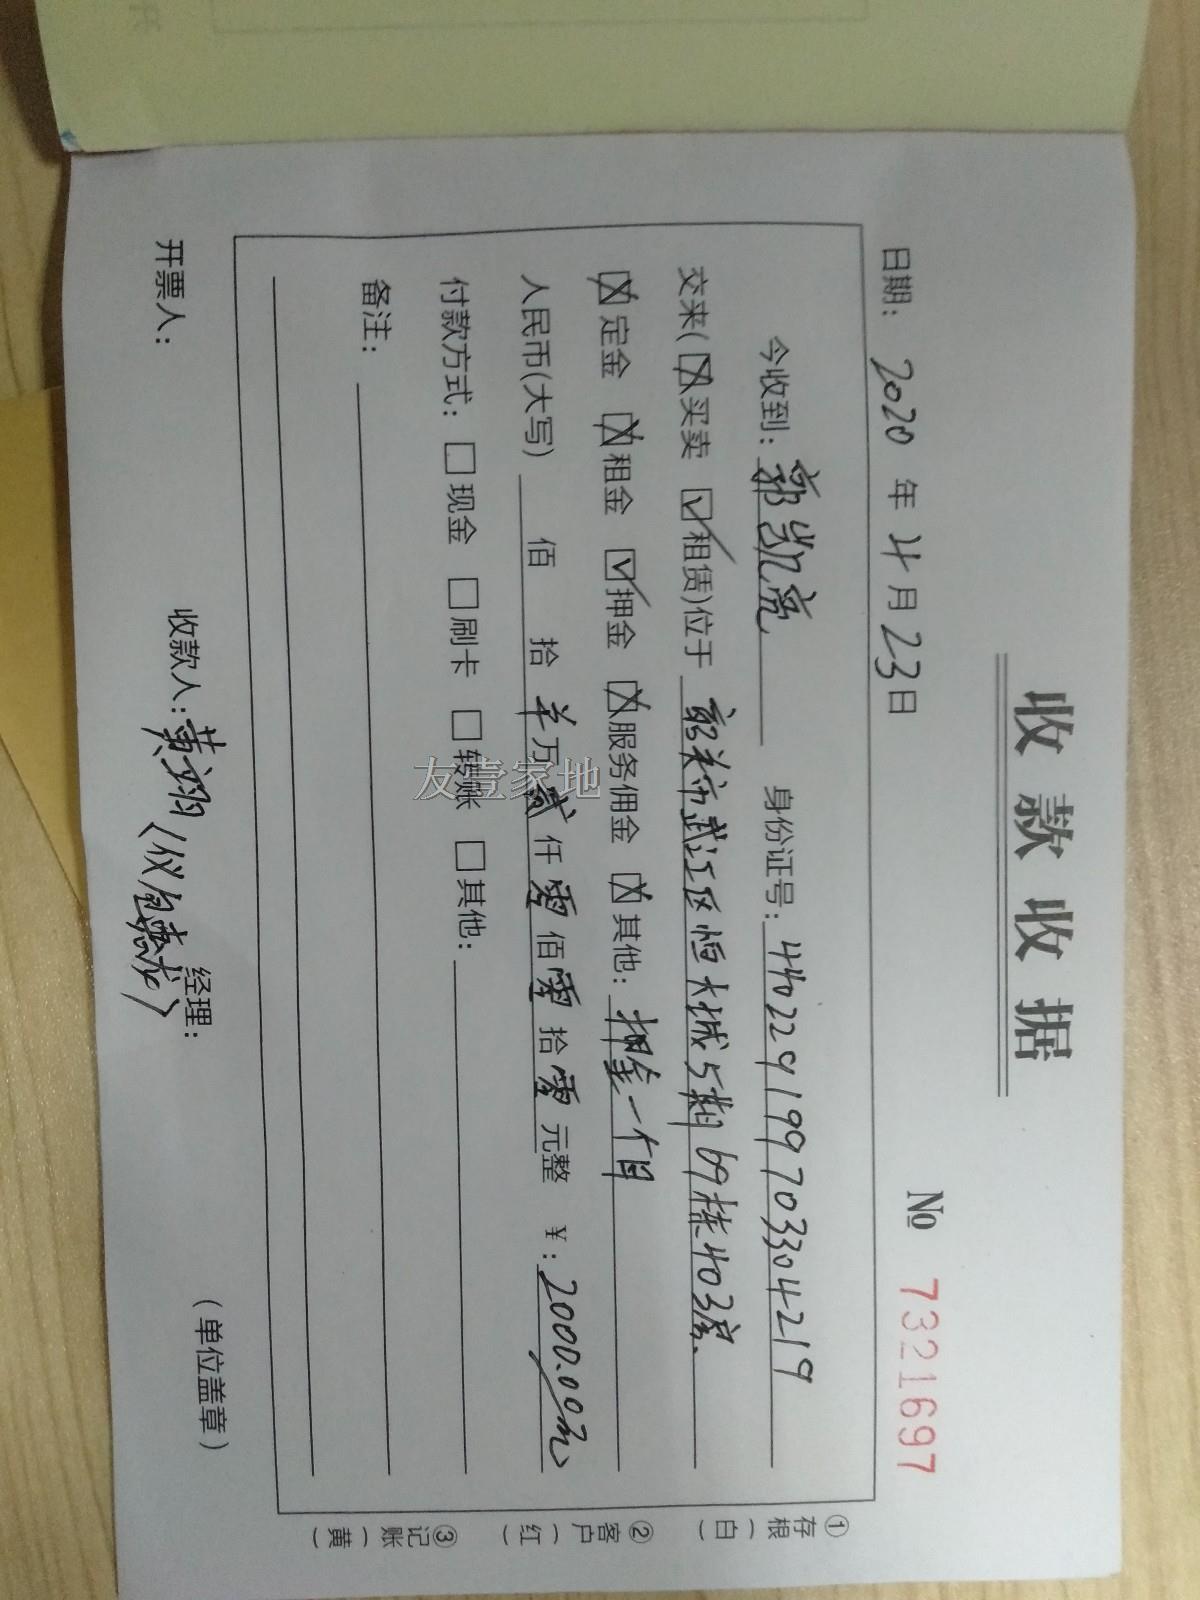 收款收据
№ 7321697
日期: 2020 年 4 月 23 日
今收到: 郭凯亮 身份证号: 440229199703304219
交来( ☒买卖 ☑租赁)位于 韶关市武江区恒大城5期69栋403房.
☒定金 ☒租金 ☑押金 ☒服务佣金 ☒其他: 押金一个月
人民币(大写) 佰 拾 羊万 贰仟 零佰 零拾 零元整 ¥: 2000.00元
付款方式: □现金 □刷卡 □转账 □其他:
备注:
开票人: 收款人: 黄翊 经理: (单位盖章)
①存根(白)
②客户(红)
③记账(黄)
友壹家地